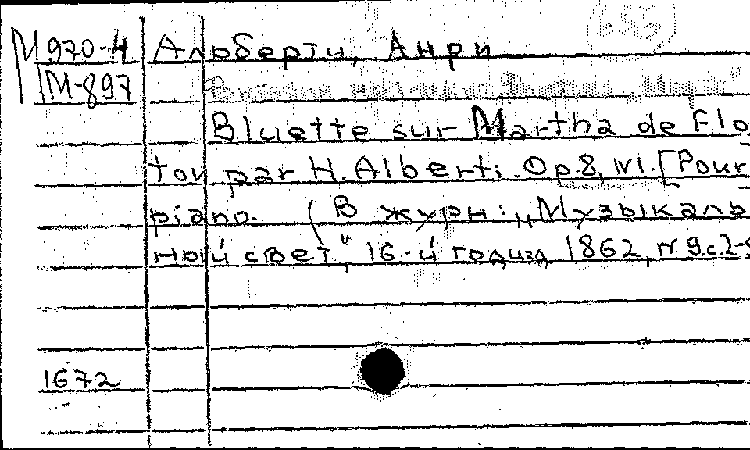 М 970-4 Альберти, Анри
М-897
Bluette sur Martha de Flo
tov par H. Alberti. Op. 8, №1. [Pour
piano. (В журн: „Музыкаль
ный свет", 16-й год изд, 1862, № 9. с. 2-
1672